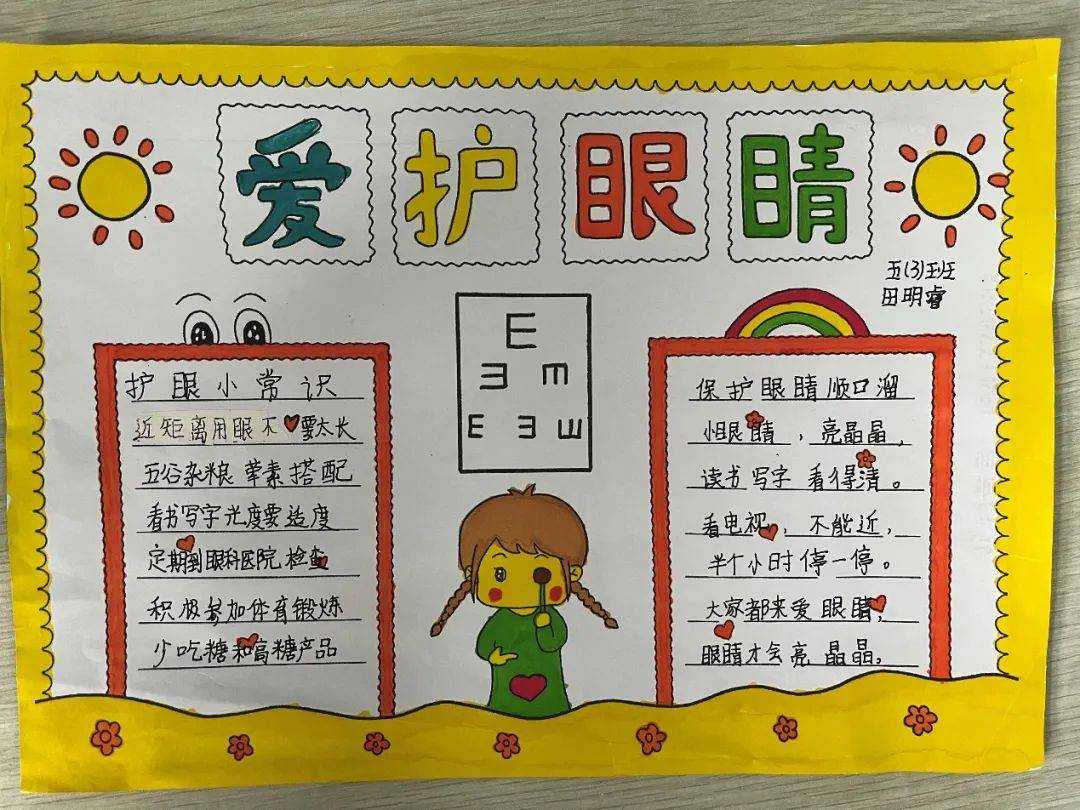 爱护眼睛
五(3)班
田明睿
E
ヨ m
E ヨ Ш
护眼小常识
近矩离用眼不要太长
五谷杂粮 荤素搭配
看书写字光度要适度
定期到眼科医院检查
积极参加体育锻炼
少吃糖和高糖产品
保护眼睛顺口溜
小眼睛，亮晶晶，
读书写字看得清。
看电视，不能近，
半个小时停一停。
大家都来爱眼睛，
眼睛才会亮晶晶。